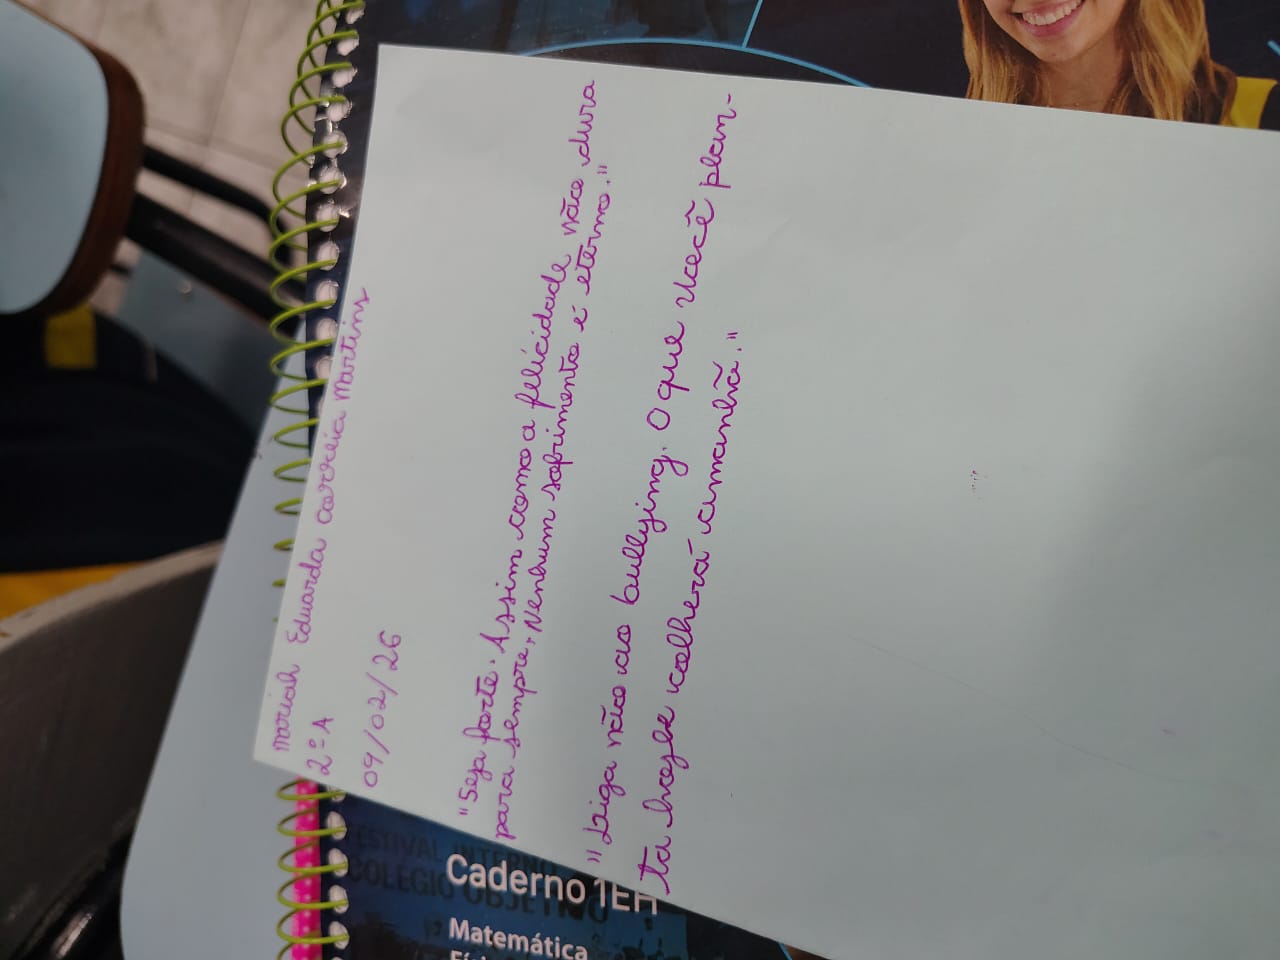 Mariah Eduarda Correia Martins
2º A
09/02/26
"Seja forte. Assim como a felicidade não dura
para sempre, Nenhum sofrimento é eterno."
"Diga não ao bullying. O que você plan-
ta hoje colherá amanhã."
FESTIVAL INTERNO
COLÉGIO OBJETIVO
Caderno 1EH
Matemática